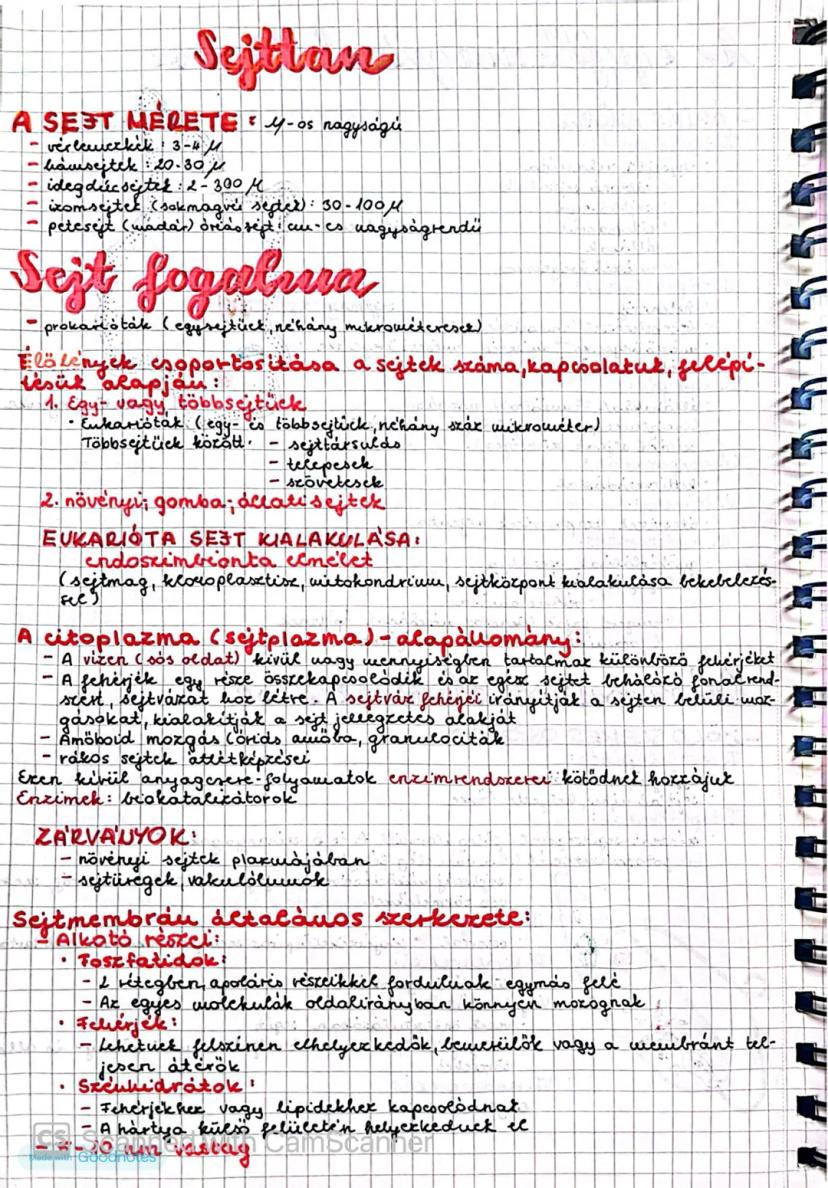 Sejttan
A SEJT MÉRETE: μ-os nagyságú
- vérlemezkék: 3-4 μ
- hámsejtek: 20-30 μ
- idegdúcsejtek: 2-300 μ
- izomsejtek (sokmagvú sejtek): 30-100 μ
- petesejt (madár) óriássejt: cm-es nagyságrendű
Sejt fogalma
- prokarióták (egysejtűek, néhány mikrométeresek)
Élőlények csoportosítása a sejtek száma, kapcsolatuk, felépí-
tésük alapján:
1. Egy- vagy többsejtűek
• Eukarióták (egy- és többsejtűek, néhány száz mikrométer)
Többsejtűek között: - sejttársulás
- telepesek
- szövetesek
2. növényi; gomba; állati sejtek
EUKARIÓTA SEJT KIALAKULÁSA:
endoszimbionta elmélet
(sejtmag, kloroplasztisz, mitokondrium, sejtközpont kialakulása bekebelezés-
sel)
A citoplazma (sejtplazma) - alapállomány:
- A vizen (sós oldat) kívül nagy mennyiségben tartalmaz különböző fehérjéket
- A fehérjék egy része összekapcsolódik és az egész sejtet behálózó fonalrend-
szert, sejtvázat hoz létre. A sejtváz fehérjéi irányítják a sejten belüli moz-
gásokat, kialakítják a sejt jellegzetes alakját
- Amöboid mozgás (óriás amőba, granulociták
- rákos sejtek áttétképzései
Ezen kívül anyagcsere-folyamatok enzimrendszerei kötődnek hozzájuk
Enzimek: biokatalizátorok
ZÁRVÁNYOK:
- növényi sejtek plazmájában
- sejtüregek, vakuólumok
Sejtmembrán általános szerkezete:
- Alkotó részei:
• Foszfatidok:
- 2 rétegben, apoláris részeikkel fordulnak egymás felé
- Az egyes molekulák oldalirányban könnyen mozognak
• Fehérjék:
- Lehetnek felszínen elhelyezkedők, bemerülők vagy a membránt tel-
jesen átérők
• Szénhidrátok:
- Fehérjékhez vagy lipidekhez kapcsolódnak
- A hártya külső felületén helyezkednek el
CS Scanned with CamScanner
- 7-10 nm vastag
Made with Goodnotes